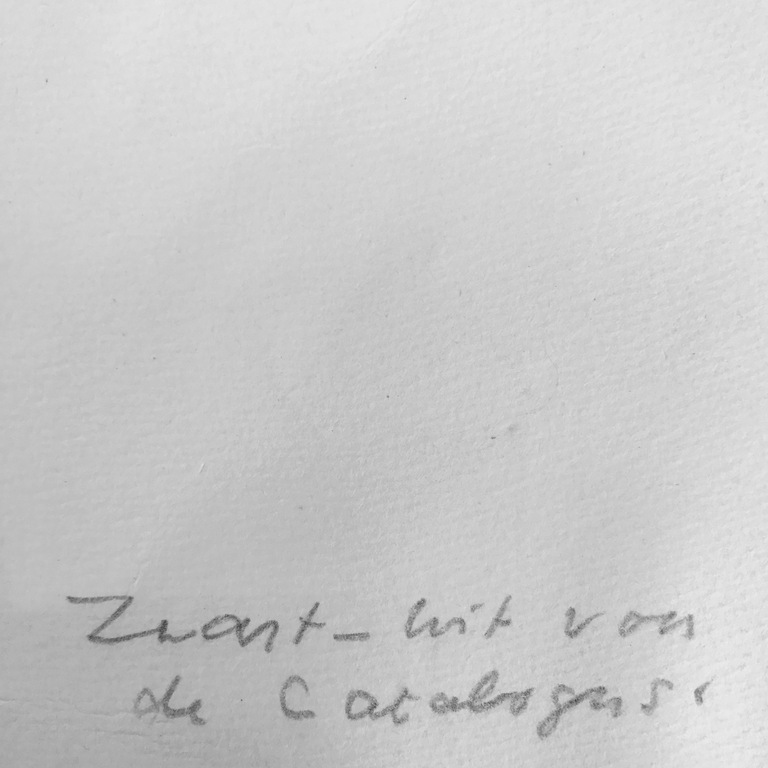 Zwart - wit von
de Catalogus.